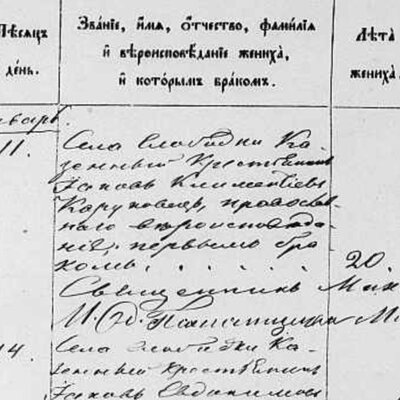 Мѣсяцъ
и
день.
Званіе, имя, отчество, фамилія
и вѣроисповѣданіе жениха,
и которымъ бракомъ.
Лѣта
жениха.
Январь
11.
Села Слободки Ка-
зенный крестьянинъ
Іаковъ Климентіевъ
православ-
наго вѣроисповѣда-
нія, первымъ бра-
комъ.
20.
Священникъ
14.
Села Слободки Ка-
зенный крестьянинъ
Іаковъ Евдокимовъ